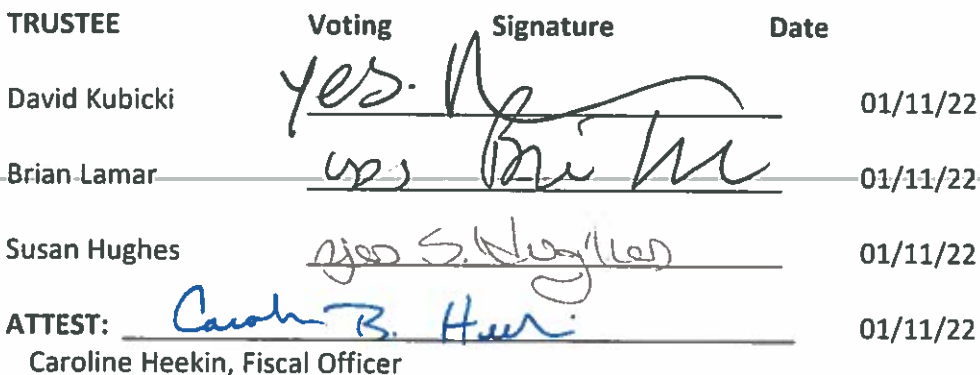 TRUSTEE Voting Signature Date
David Kubicki yes. 01/11/22
Brian Lamar yes 01/11/22
Susan Hughes yes S. Hughes 01/11/22
ATTEST: Caroline B. 01/11/22
Caroline Heekin, Fiscal Officer